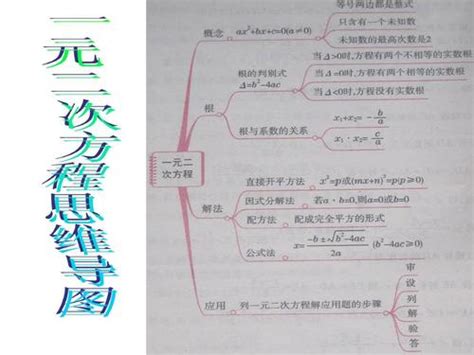 一元二次方程思维导图
一元二次方程
概念
ax²+bx+c=0(a≠0)
等号两边都是整式
只含有一个未知数
未知数的最高次数是2
根
根的判别式
Δ=b²-4ac
当Δ>0时,方程有两个不相等的实数根
当Δ=0时,方程有两个相等的实数根
当Δ<0时,方程没有实数根
根与系数的关系
x₁+x₂= -b/a
x₁·x₂= c/a
解法
直接开平方法 x²=p或(mx+n)²=p(p≥0)
因式分解法 若a·b=0,则a=0或b=0
配方法 配成完全平方的形式
公式法 x= (-b±√(b²-4ac))/2a (b²-4ac≥0)
应用
列一元二次方程解应用题的步骤
审
设
列
解
验
答